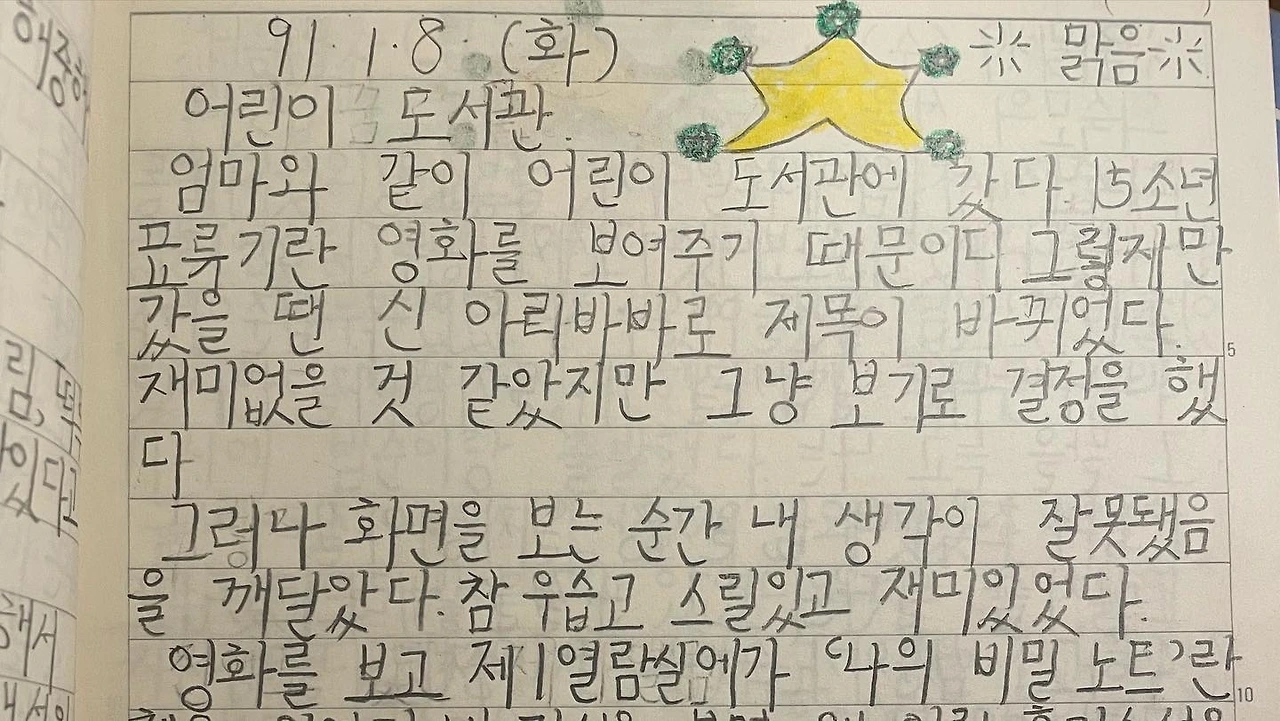 91. 1. 8. (화) 맑음
어린이 도서관.
엄마와 같이 어린이 도서관에 갔다 15소년
표류기란 영화를 보여주기 때문이다 그렇지만
갔을 땐 신 아리바바로 제목이 바뀌었다.
5
재미없을 것 같았지만 그냥 보기로 결정을 했
다
그러나 화면을 보는 순간 내 생각이 잘못됐음
을 깨달았다. 참 우습고 스릴있고 재미있었다.
영화를 보고 제1열람실에가 '나의 비밀 노트'란
10